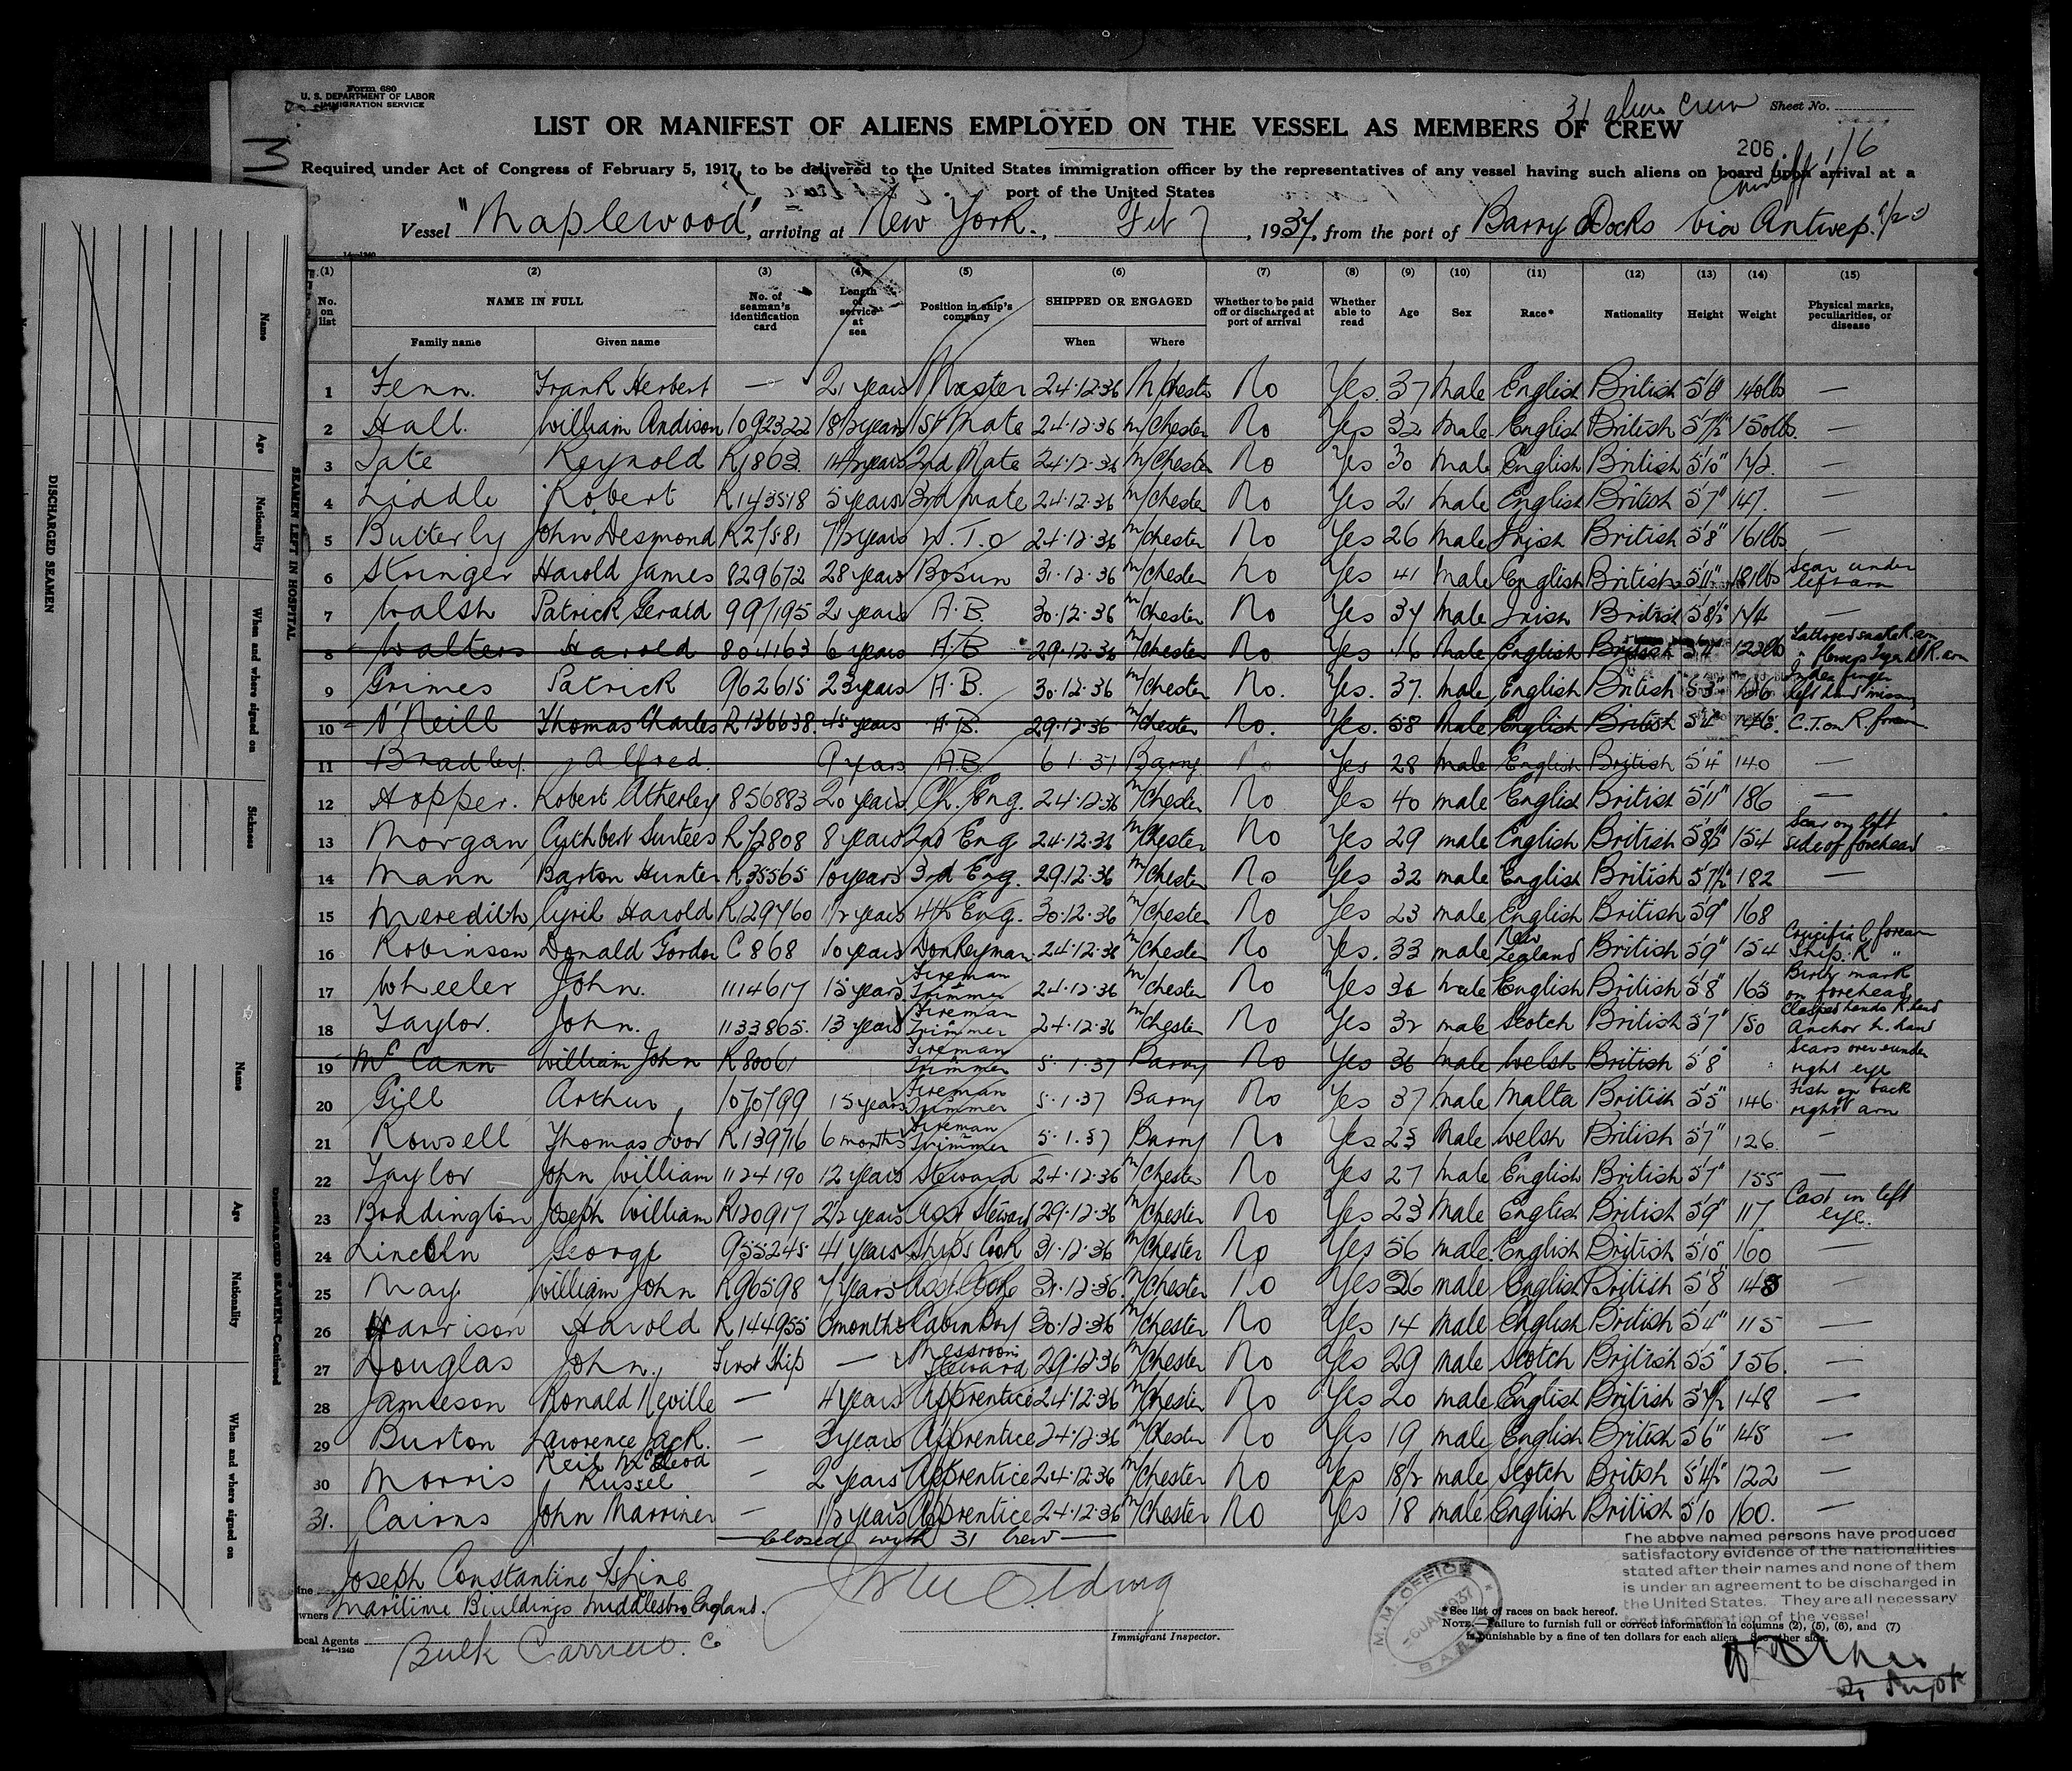 Form 680
U. S. DEPARTMENT OF LABOR
IMMIGRATION SERVICE
31 alien crew Sheet No.
LIST OR MANIFEST OF ALIENS EMPLOYED ON THE VESSEL AS MEMBERS OF CREW
206
Cardiff 1/6
Required under Act of Congress of February 5, 1917, to be delivered to the United States immigration officer by the representatives of any vessel having such aliens on board upon arrival at a
port of the United States
Vessel "Maplewood", arriving at New York., Feb 7, 1937, from the port of Barry Docks via Antwep.
14—1240
(1) (2) (3) (4) (5) (6) (7) (8) (9) (10) (11) (12) (13) (14) (15)
No. on list NAME IN FULL No. of seaman's identification card Length of service at sea Position in ship's company SHIPPED OR ENGAGED Whether to be paid off or discharged at port of arrival Whether able to read Age Sex Race* Nationality Height Weight Physical marks, peculiarities, or disease
Family name Given name When Where
1 Fenn. Frank Herbert — 21 years Master 24.12.36 M/Chester No Yes. 37 Male English British 140lbs —
2 Hall. William Andison 1092322 18½ years 1st Mate 24.12.36 M/Chester No Yes 32 Male English British 5'7½" 150lbs. —
3 Tate Reynold R1863. 14½ years 2nd Mate 24.12.36 M/Chester No Yes 30 Male English British 5'10" —
4 Liddle Robert R143518 5 years 3rd Mate 24.12.36 M/Chester No Yes 21 Male English British 5'7" 147. —
5 Butterly John Desmond 7½ years W.T.O 24.12.36 M/Chester No Yes 26 Male Irish British 5'8" 161lbs —
6 Stringer Harold James 829672 28 years Bosun 31.12.36 M/Chester No Yes 41 Male English British 5'11" 181lbs Scar under left arm
7 Walsh Patrick Gerald 991195 21 years A.B. 30.12.36 M/Chester No Yes 34 Male Irish British 5'8½" —
8 Walters Harold 804163 6 years A.B 29.12.36 M/Chester No Yes Male English British 123lb
9 Grimes Patrick 962615 23 years A.B. 30.12.36 M/Chester No. Yes. 37. Male English British 5'3" Index finger left hand missing
10 O'Neill Thomas Charles R136638. 45 years A.B. 29.12.36 M/Chester No. Yes. 58 Male English British 5'4" 146. C.T. on R. forearm
11 Bradley. Alfred. 9 years A.B 6 1.37 Barry No Yes 28 Male English British 5'4" 140 —
12 Hopper. Robert Atherley 856883 20 years Ch. Eng. 24.12.36 M/Chester No Yes 40 male English British 5'11" 186 —
13 Morgan Cuthbert Surtees R72808 8 years 2nd Eng 24.12.36 M/Chester No Yes 29 male English British 5'8½" 154 Scar on left side of forehead
14 Mann Barton Hunter R35565 10 years 3rd Eng. 29.12.36 M/Chester No Yes 32 male English British 5'7½" 182 —
15 Meredith Cyril Harold R129760 1½ years 4th Eng. 30.12.36 M/Chester No Yes 23 male English British 5'9" 168
16 Robinson Donald Gordon C868 10 years Donkeyman 24.12.36 M/Chester No Yes. 33 male New Zealand British 5'9" 154 Crucifix L forearm Ship. R "
17 Wheeler John. 1114617 15 years Fireman & Trimmer 24.12.36 M/Chester No Yes 36 Male English British 5'8" 165 Birth mark on forehead
18 Taylor. John. 1133865. 13 years Fireman & Trimmer 24.12.36 M/Chester No Yes 32 male Scotch British 5'7" 150 Clasped hands R. hand Anchor L. hand
19 McCann William John R80061 Fireman & Trimmer 5.1.37 Barry No Yes 36 male Welsh British 5'8" Scars over & under right eye
20 Gill Arthur 1070799 15 years Fireman & Trimmer 5.1.37 Barry No Yes 37 Male Malta British 5'5" 146 Fish on back right arm
21 Rowsell Thomas Ivor R139716 6 months Fireman & Trimmer 5.1.37 Barry No Yes 23 Male Welsh British 5'7" 126. —
22 Taylor John William 1124190 12 years Steward 24.12.36 M/Chester No Yes 27 Male English British 5'7" 155 —
23 Boddington Joseph William R120917 2½ years Asst Steward 29.12.36 M/Chester No Yes 23 Male English British 5'9" 117 Cast in left eye.
24 Lincoln George 955245 41 years Ships Cook 31.12.36 M/Chester No Yes 56 male English British 5'10" 160 —
25 May William John R96598 7 years Asst. Cook 31.12.36. M/Chester No Yes 26 male English British 5'8" 148 —
26 Harrison Harold R144955 6 months Cabin Boy 30.12.36 M/Chester No Yes 14 Male English British 5'4" 115 —
27 Douglas John. First Ship — Messroom Steward 29.12.36 M/Chester No Yes 29 Male Scotch British 5'5" 156. —
28 Jamieson Ronald Neville — 4 years Apprentice 24.12.36 M/Chester No Yes 20 male English British 5'7½" 148 —
29 Burton Lawrence Jack. — 3 years Apprentice 24.12.36 M/Chester No Yes 19 male English British 5'6" 148 —
30 Morris Neil McLeod Russel — 2 years Apprentice 24.12.36 M/Chester No Yes 18½ male Scotch British 5'4½" 122 —
31. Cairns John Marriner — 1½ years Apprentice 24.12.36 M/Chester No Yes 18 male English British 5'10 160. —
Closed with 31 Crew
The above named persons have produced
satisfactory evidence of the nationalities
stated after their names and none of them
is under an agreement to be discharged in
the United States. They are all necessary
for the operation of the vessel
Line Joseph Constantine Sshine
Owners Maritime Buildings Middlesbro England.
Local Agents Bulk Carriers. Co
14—1240
Immigrant Inspector.
M.M. OFFICE
-6 JAN 1937
BARRY
*See list of races on back hereof.
NOTE.—Failure to furnish full or correct information in columns (2), (5), (6), and (7)
is punishable by a fine of ten dollars for each alien. See other side.
Supt
DISCHARGED SEAMEN
SEAMEN LEFT IN HOSPITAL
Name
Age
Nationality
When and where signed on
Sickness
DISCHARGED SEAMEN—Continued
Name
Age
Nationality
When and where signed on